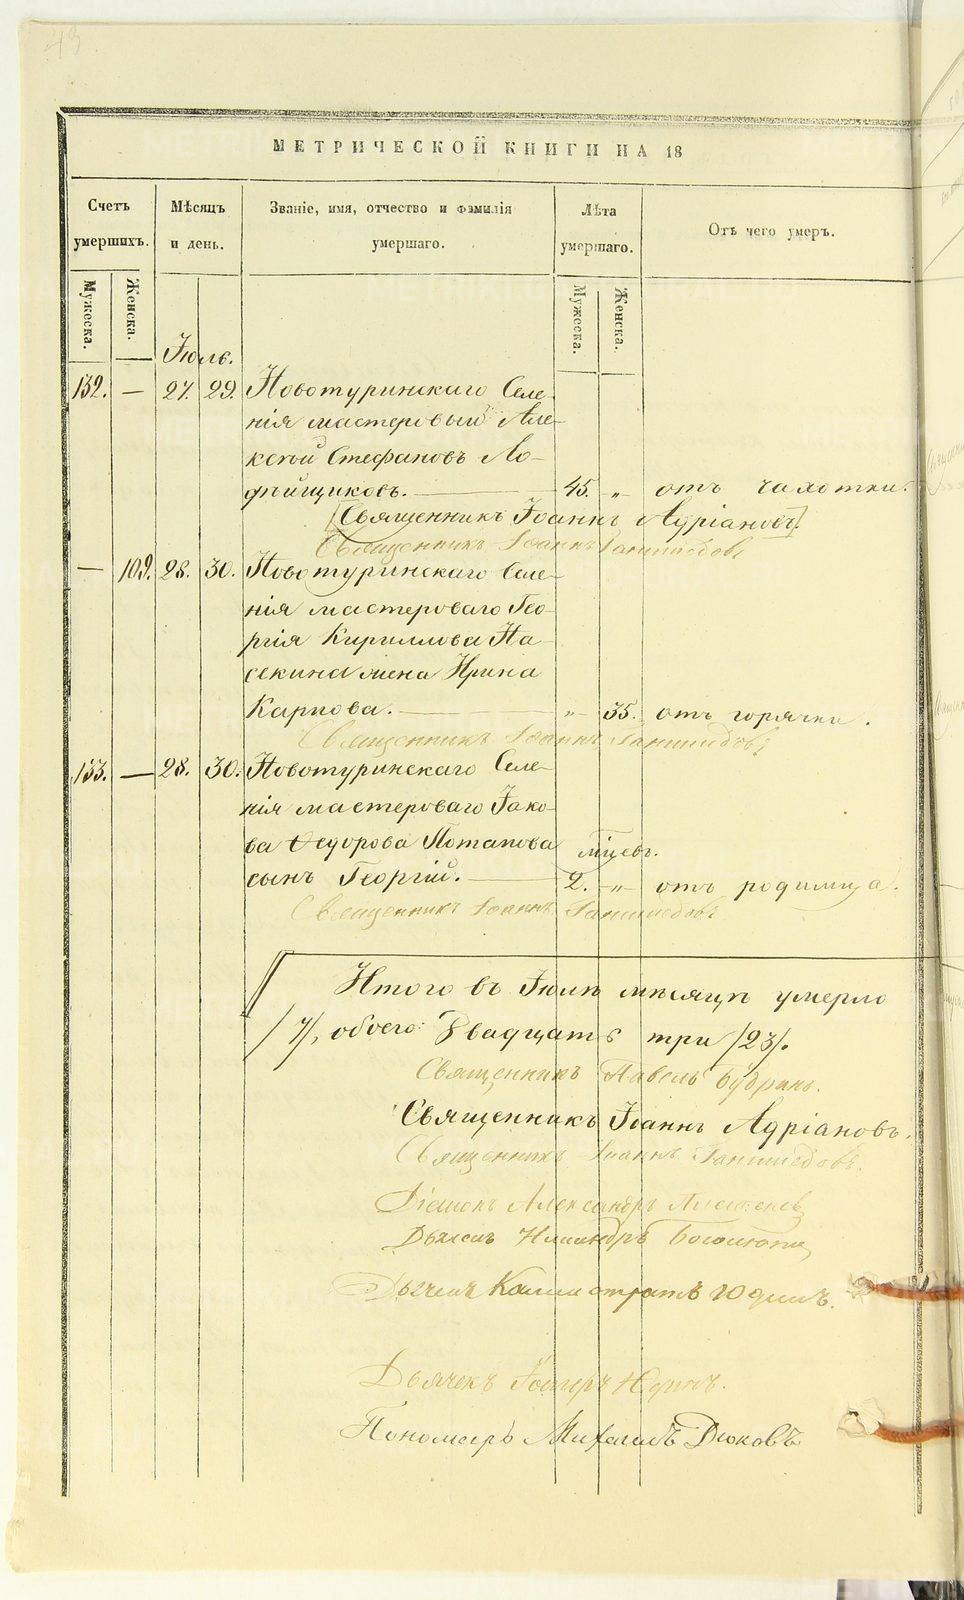 43
МЕТРИЧЕСКОЙ КНИГИ НА 18
Счетъ умершихъ.
Мужеска.
Женска.
Мѣсяцъ и день.
Званіе, имя, отчество и фамилія умершаго.
Лѣта умершаго.
Мужеска.
Женска.
Отъ чего умеръ.
Іюль.
132. — 27. 29. Новотуринскаго Селе-
нія мастеровый Але-
ксѣй Стефановъ Ло-
фѣйщиковъ. — 45. „ отъ чахотки.
Священникъ Іоаннъ Адріановъ
Священникъ Іоаннъ
— 109. 28. 30. Новотуринскаго Селе-
нія мастероваго Гео-
ргія Кириллова Па-
секина жена Ирина
Карпова. — „ 35. отъ горячки.
Священникъ Іоаннъ
133. — 28. 30. Новотуринскаго Селе-
нія мастероваго Іако-
ва Ѳедорова Потапова мѣцев.
сынъ Георгій. — 2. „ отъ родимца.
Священникъ Іоаннъ
Итого въ Іюлѣ мѣсяцѣ умерло
обоего: Двадцать три /23/.
Священникъ Павелъ Будринъ.
Священникъ Іоаннъ Адріановъ.
Священникъ Іоаннъ
Діаконъ Александръ
Дьячекъ
Дьячекъ Каллистратъ Юдинъ.
Дьячекъ
Пономарь Михаилъ Дюковъ